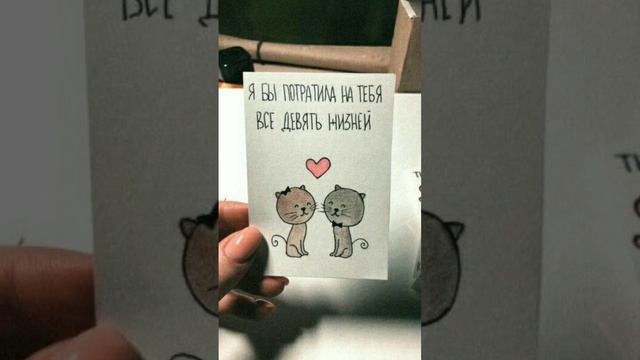 Я БЫ ПОТРАТИЛА НА ТЕБЯ
ВСЕ ДЕВЯТЬ ЖИЗНЕЙ